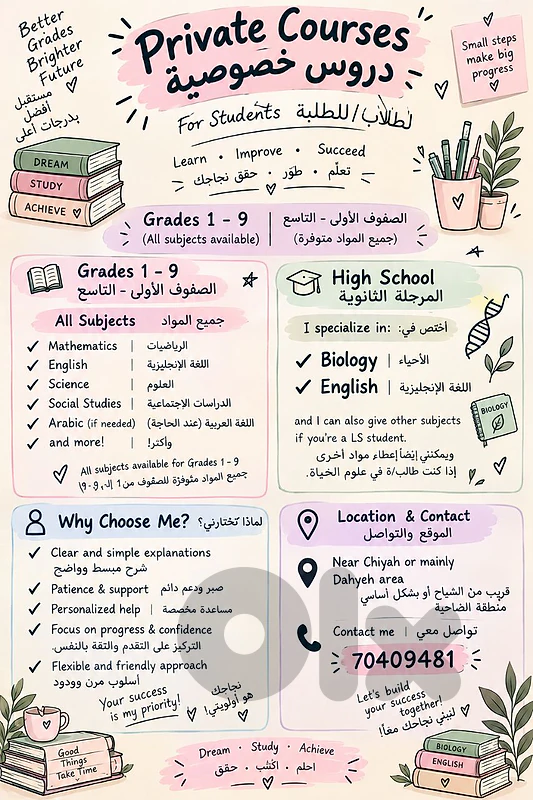 Better
Grades
Brighter
Future
مستقبل
أفضل
بدرجات أعلى
Private Courses
دروس خصوصية
Small steps
make big
progress
For Students للطلاب/للطلبة
Learn · Improve · Succeed
تعلّم · طوّر · حقق نجاحك
DREAM
STUDY
ACHIEVE
Grades 1 - 9 | الصفوف الأولى - التاسع
(All subjects available) | (جميع المواد متوفرة)
Grades 1 - 9
الصفوف الأولى - التاسع
All Subjects جميع المواد
Mathematics | الرياضيات
English | اللغة الإنجليزية
Science | العلوم
Social Studies | الدراسات الإجتماعية
Arabic (if needed) | اللغة العربية (عند الحاجة)
and more! | وأكثر!
All subjects available for Grades 1 - 9
جميع المواد متوفرة للصفوف من
High School
المرحلة الثانوية
I specialize in: أختص في:
Biology | الأحياء
English | اللغة الإنجليزية
BIOLOGY
and I can also give other subjects
if you're a LS student.
ويمكنني إيضًا إعطاء مواد أخرى
إذا كنت طالب/ة في علوم الحياة.
Why Choose Me? لماذا تختارني؟
Clear and simple explanations
شرح مبسط وواضح
Patience & support صبر ودعم دائم
Personalized help | مساعدة مخصصة
Focus on progress & confidence
التركيز على التقدم والثقة بالنفس.
Flexible and friendly approach
أسلوب مرن وودود
Your success
is my priority!
نجاحك
هو أولويتي!
Location & Contact
الموقع والتواصل
Near Chiyah or mainly
Dahyeh area
قريب من الشياح أو بشكل أساسي
منطقة الضاحية
Contact me | تواصل معي
70409481
Let's build
your success
together!
لنبني نجاحك معًا!
olx
Good
Things
Take Time
Dream · Study · Achieve
احلم · · حقق
BIOLOGY
ENGLISH